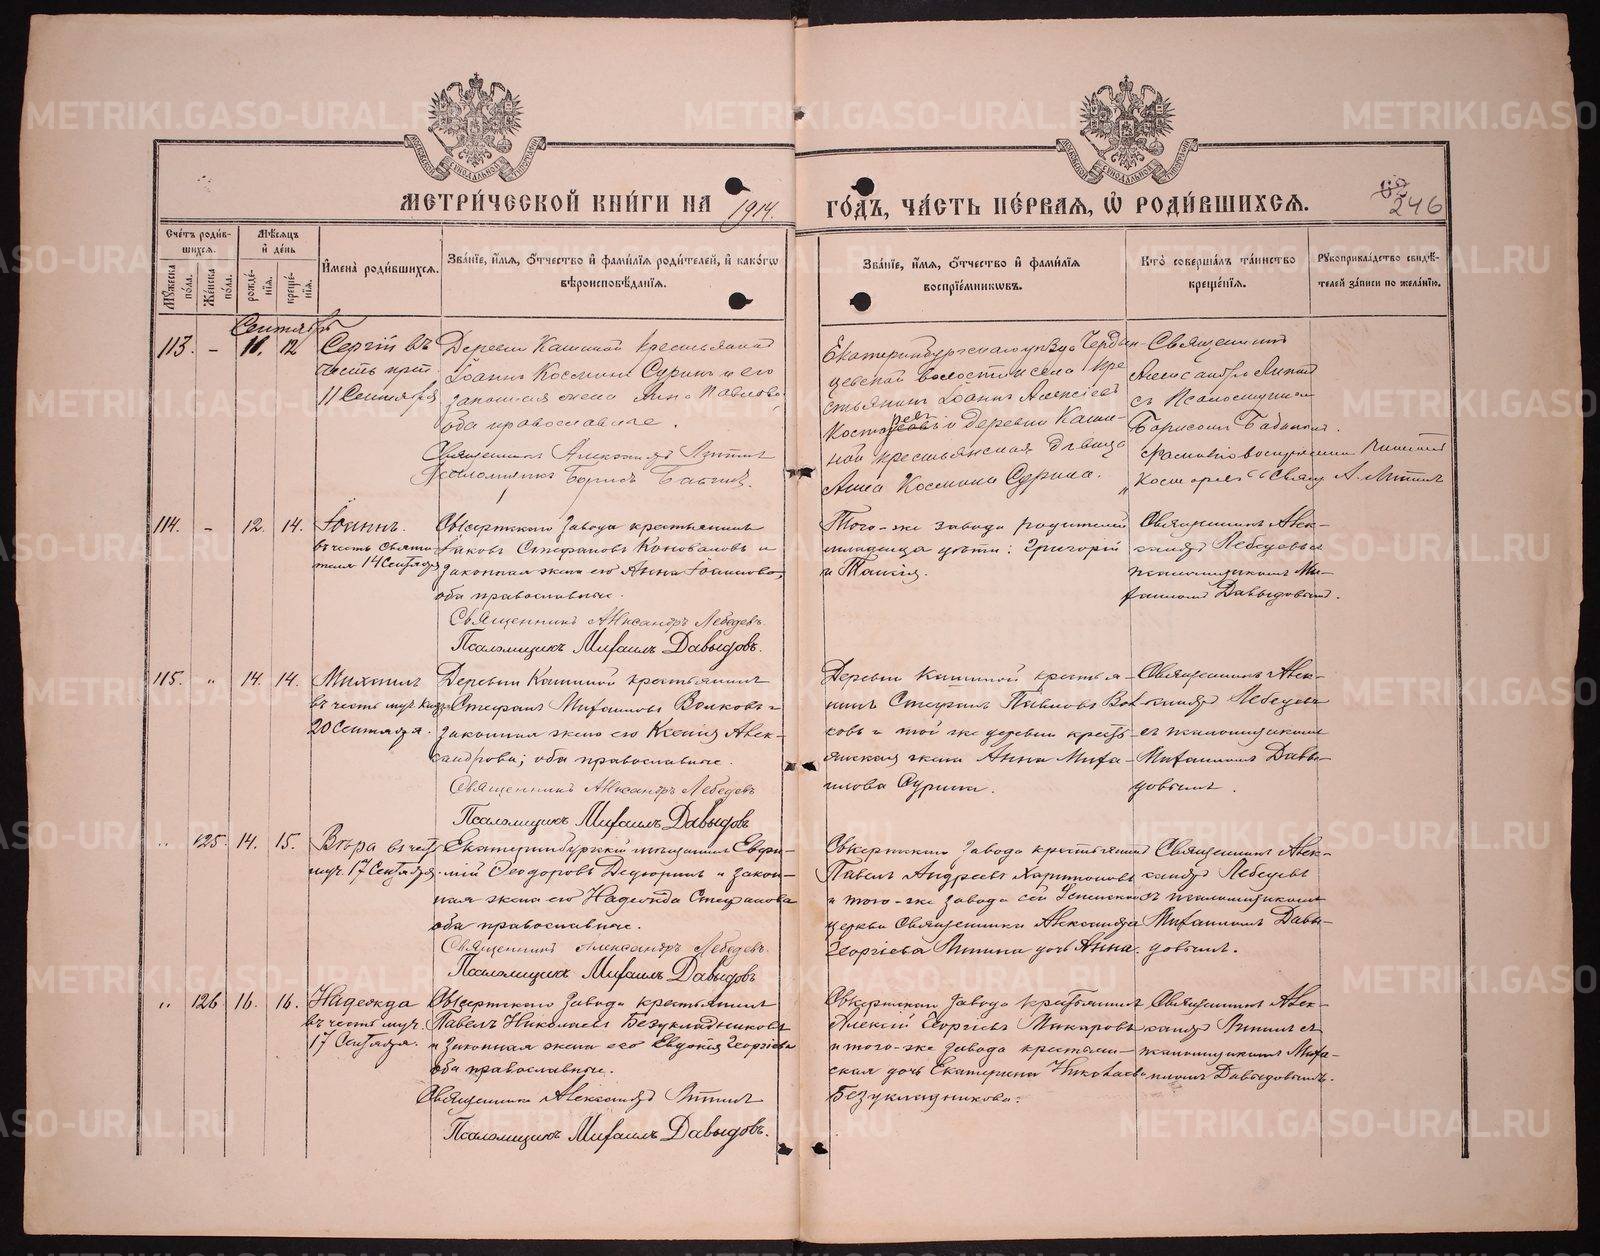 МЕТРИ́ЧЕСКОЙ КНИ́ГИ НА 1914. ГО́ДЪ, ЧА́СТЬ ПЕ́РВАЯ, Ѽ РОДИ́ВШИХСЯ.
246
Сче́тъ роди́в-
шихся.
Мꙋ́жеска по́ла.
Же́нска по́ла.
Мѣ́сяцъ и́ де́нь
рожде́-
нїя.
креще́-
нїя.
И҆мена̀ роди́вшихся.
Зва́нїе, и҆́мя, ѻ҆́тчество и҆ фами́лїя роди́телей, и҆ како́гѡ
вѣроисповѣ́данїя.
Зва́нїе, и҆́мя, ѻ҆́тчество и҆ фами́лїя
воспрїе́мниковъ.
Кто̀ соверша́лъ та́инство
креще́нїя.
Рꙋкоприкла́дство свидѣ́-
телей за́писи по жела́нїю.
Сентябрь
113. – 11. 12 Сергій въ
честь преп.
11 Сентября
Деревни Кашиной крестьянин
Іоаннъ Космин Суринъ и его
законная жена Анна Павлова
оба православные.
Священникъ Александръ
Псаломщикъ Борисъ
Екатеринбургскаго уѣзда
волости села кре
стьянинъ Іоаннъ Алексіев
и деревни Каши-
ной крестьянская дѣвица
Анна Космина Сурина.
Священник
Александръ
съ Псаломщиком
Борисом
114. – 12. 14. Іоаннъ.
въ честь Святи
теля 14 Сентября
Сысертскаго завода крестьянинъ
Іаковъ Стефановъ Коноваловъ и
законная жена его Анна Іоаннова,
оба православные.
Священникъ Александръ Лебедевъ
Псаломщикъ Михаилъ Давыдовъ.
Того-же завода родителей
младенца дѣти: Григорій
и Таисія.
Священникъ Алек-
сандръ Лебедевъ съ
псаломщикомъ Ми-
хаиломъ Давыдовымъ.
115. „ 14. 14. Михаилъ
въ честь муч. княз.
20 Сентября.
Деревни Кашиной крестьянинъ
Стефанъ Михаиловъ Волковъ и
законная жена его Ксенія Алек-
сандрова; оба православные.
Священникъ Александръ Лебедевъ
Псаломщикъ Михаилъ Давыдовъ
Деревни Кашиной крестья-
нинъ Стефанъ Павловъ Вол
ковъ и той же деревни кресть
янская жена Анна Миха-
илова Сурина.
Священникъ Алек-
сандръ Лебедевъ
съ псаломщикомъ
Михаиломъ Давы-
довымъ.
„ 125. 14. 15. Вѣра въ честь
муч. 17 Сентября.
Екатеринбургскій мѣщанинъ Евфи-
мій Ѳеодоровъ Дедюринъ и закон-
ная жена его Надежда Стефанова
оба православные.
Священникъ Александръ Лебедевъ.
Псаломщикъ Михаилъ Давыдовъ
Сысертскаго завода крестьянинъ
Павелъ Андреевъ Харитоновъ
и того-же завода сей Успенской
церкви Священника Александра
Георгіева дочь Анна.
Священникъ Алек-
сандръ Лебедевъ
съ псаломщикомъ
Михаиломъ Давы-
довымъ.
„ 126 16. 16. Надежда
въ честь муч.
17 Сентября.
Сысертскаго завода крестьянинъ
Павелъ Николаевъ Безукладниковъ
и законная жена его Евдокія Георгіева
оба православные.
Священникъ Александръ
Псаломщикъ Михаилъ Давыдовъ.
Сысертскаго завода крестьянинъ
Алексій Георгіевъ Макаровъ
и того-же завода крестьян-
ская дочь Екатерина Николаева
Безукладникова.
Священникъ Алек-
сандръ съ
псаломщикомъ Миха-
иломъ Давыдовымъ.
METRIKI.GASO-URAL.RU